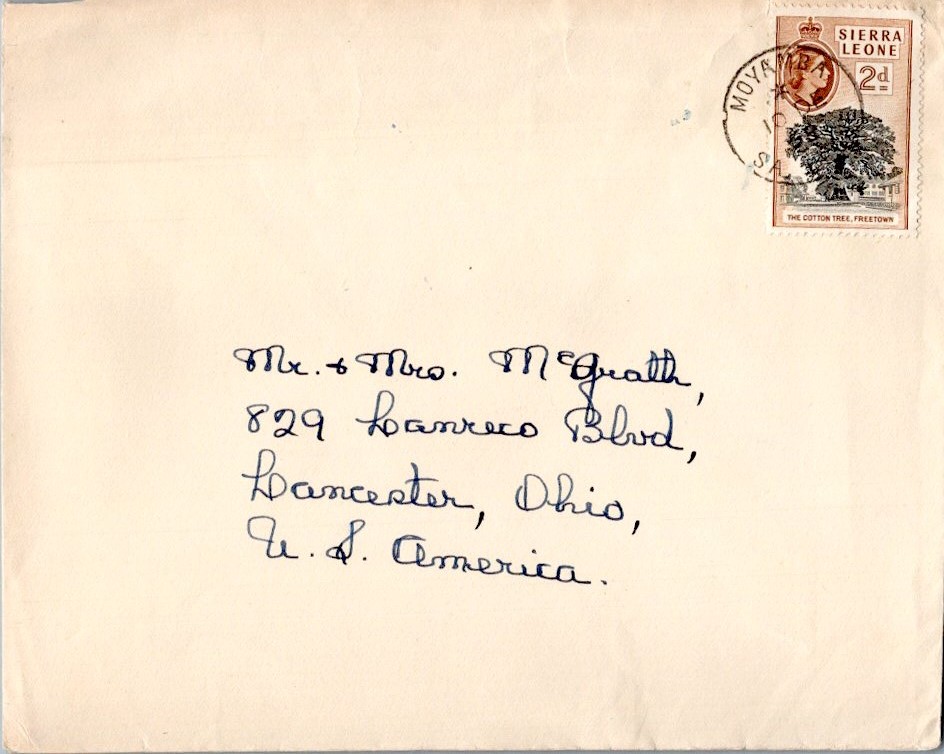 SIERRA
LEONE
2d
MOYAMBA
THE COTTON TREE, FREETOWN
Mr. & Mrs. McGrath,
829 Lanreco Blvd,
Lancaster, Ohio,
U. S. America.